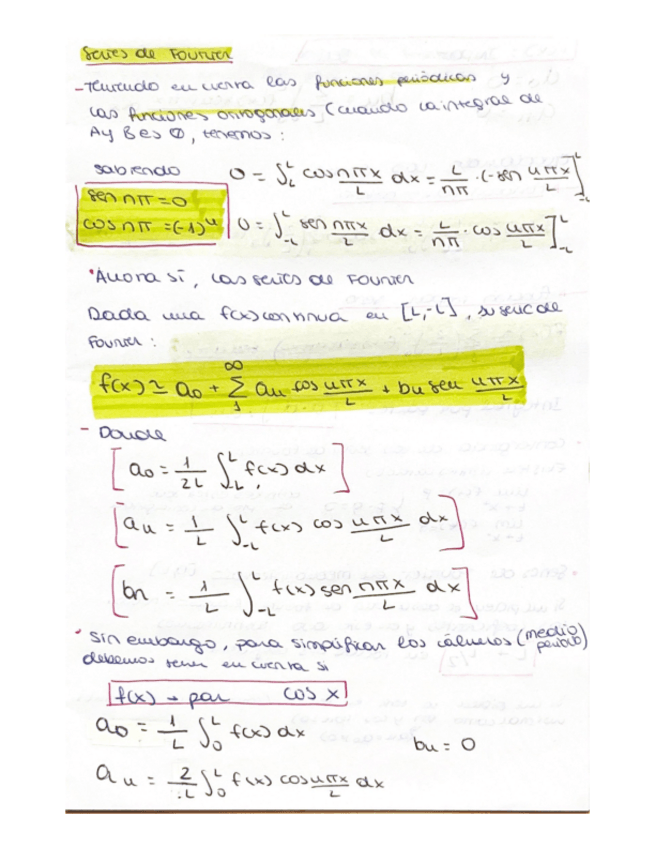 Series de Fourier
- Teniendo en cuenta las funciones periódicas y
las funciones ortogonales (cuando la integral de
A y B es 0, tenemos:
sabiendo
sen nπ = 0
cos nπ = (-1)^n
0 = ∫_L^L cos nπx/L dx = L/nπ · (-sen nπx/L]_-L^L
0 = ∫_-L^L sen nπx/L dx = L/nπ · cos nπx/L]_-L^L
• Ahora sí, las series de Fourier
Dada una f(x) continua en [L,-L], su serie de
Fourier:
f(x) ≃ a0 + ∑_1^∞ an cos nπx/L + bn sen nπx/L
- Donde
[a0 = 1/2L ∫_-L^L f(x) dx]
[an = 1/L ∫_-L^L f(x) cos nπx/L dx]
[bn = 1/L ∫_-L^L f(x) sen nπx/L dx]
• Sin embargo, para simplificar los cálculos (medio periodo)
debemos tener en cuenta si
f(x) → par cos x
a0 = 1/L ∫_0^L f(x) dx
bn = 0
an = 2/L ∫_0^L f(x) cos nπx/L dx